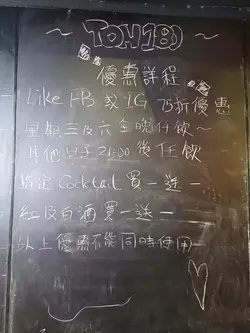 ~TOH180~
優惠詳程
Like FB 或 IG 75折優惠
星期三及六全晚任飲~
其他日子21:30後任飲
指定Cocktail買一送一
紅及白酒買一送一
以上優惠不能同時使用